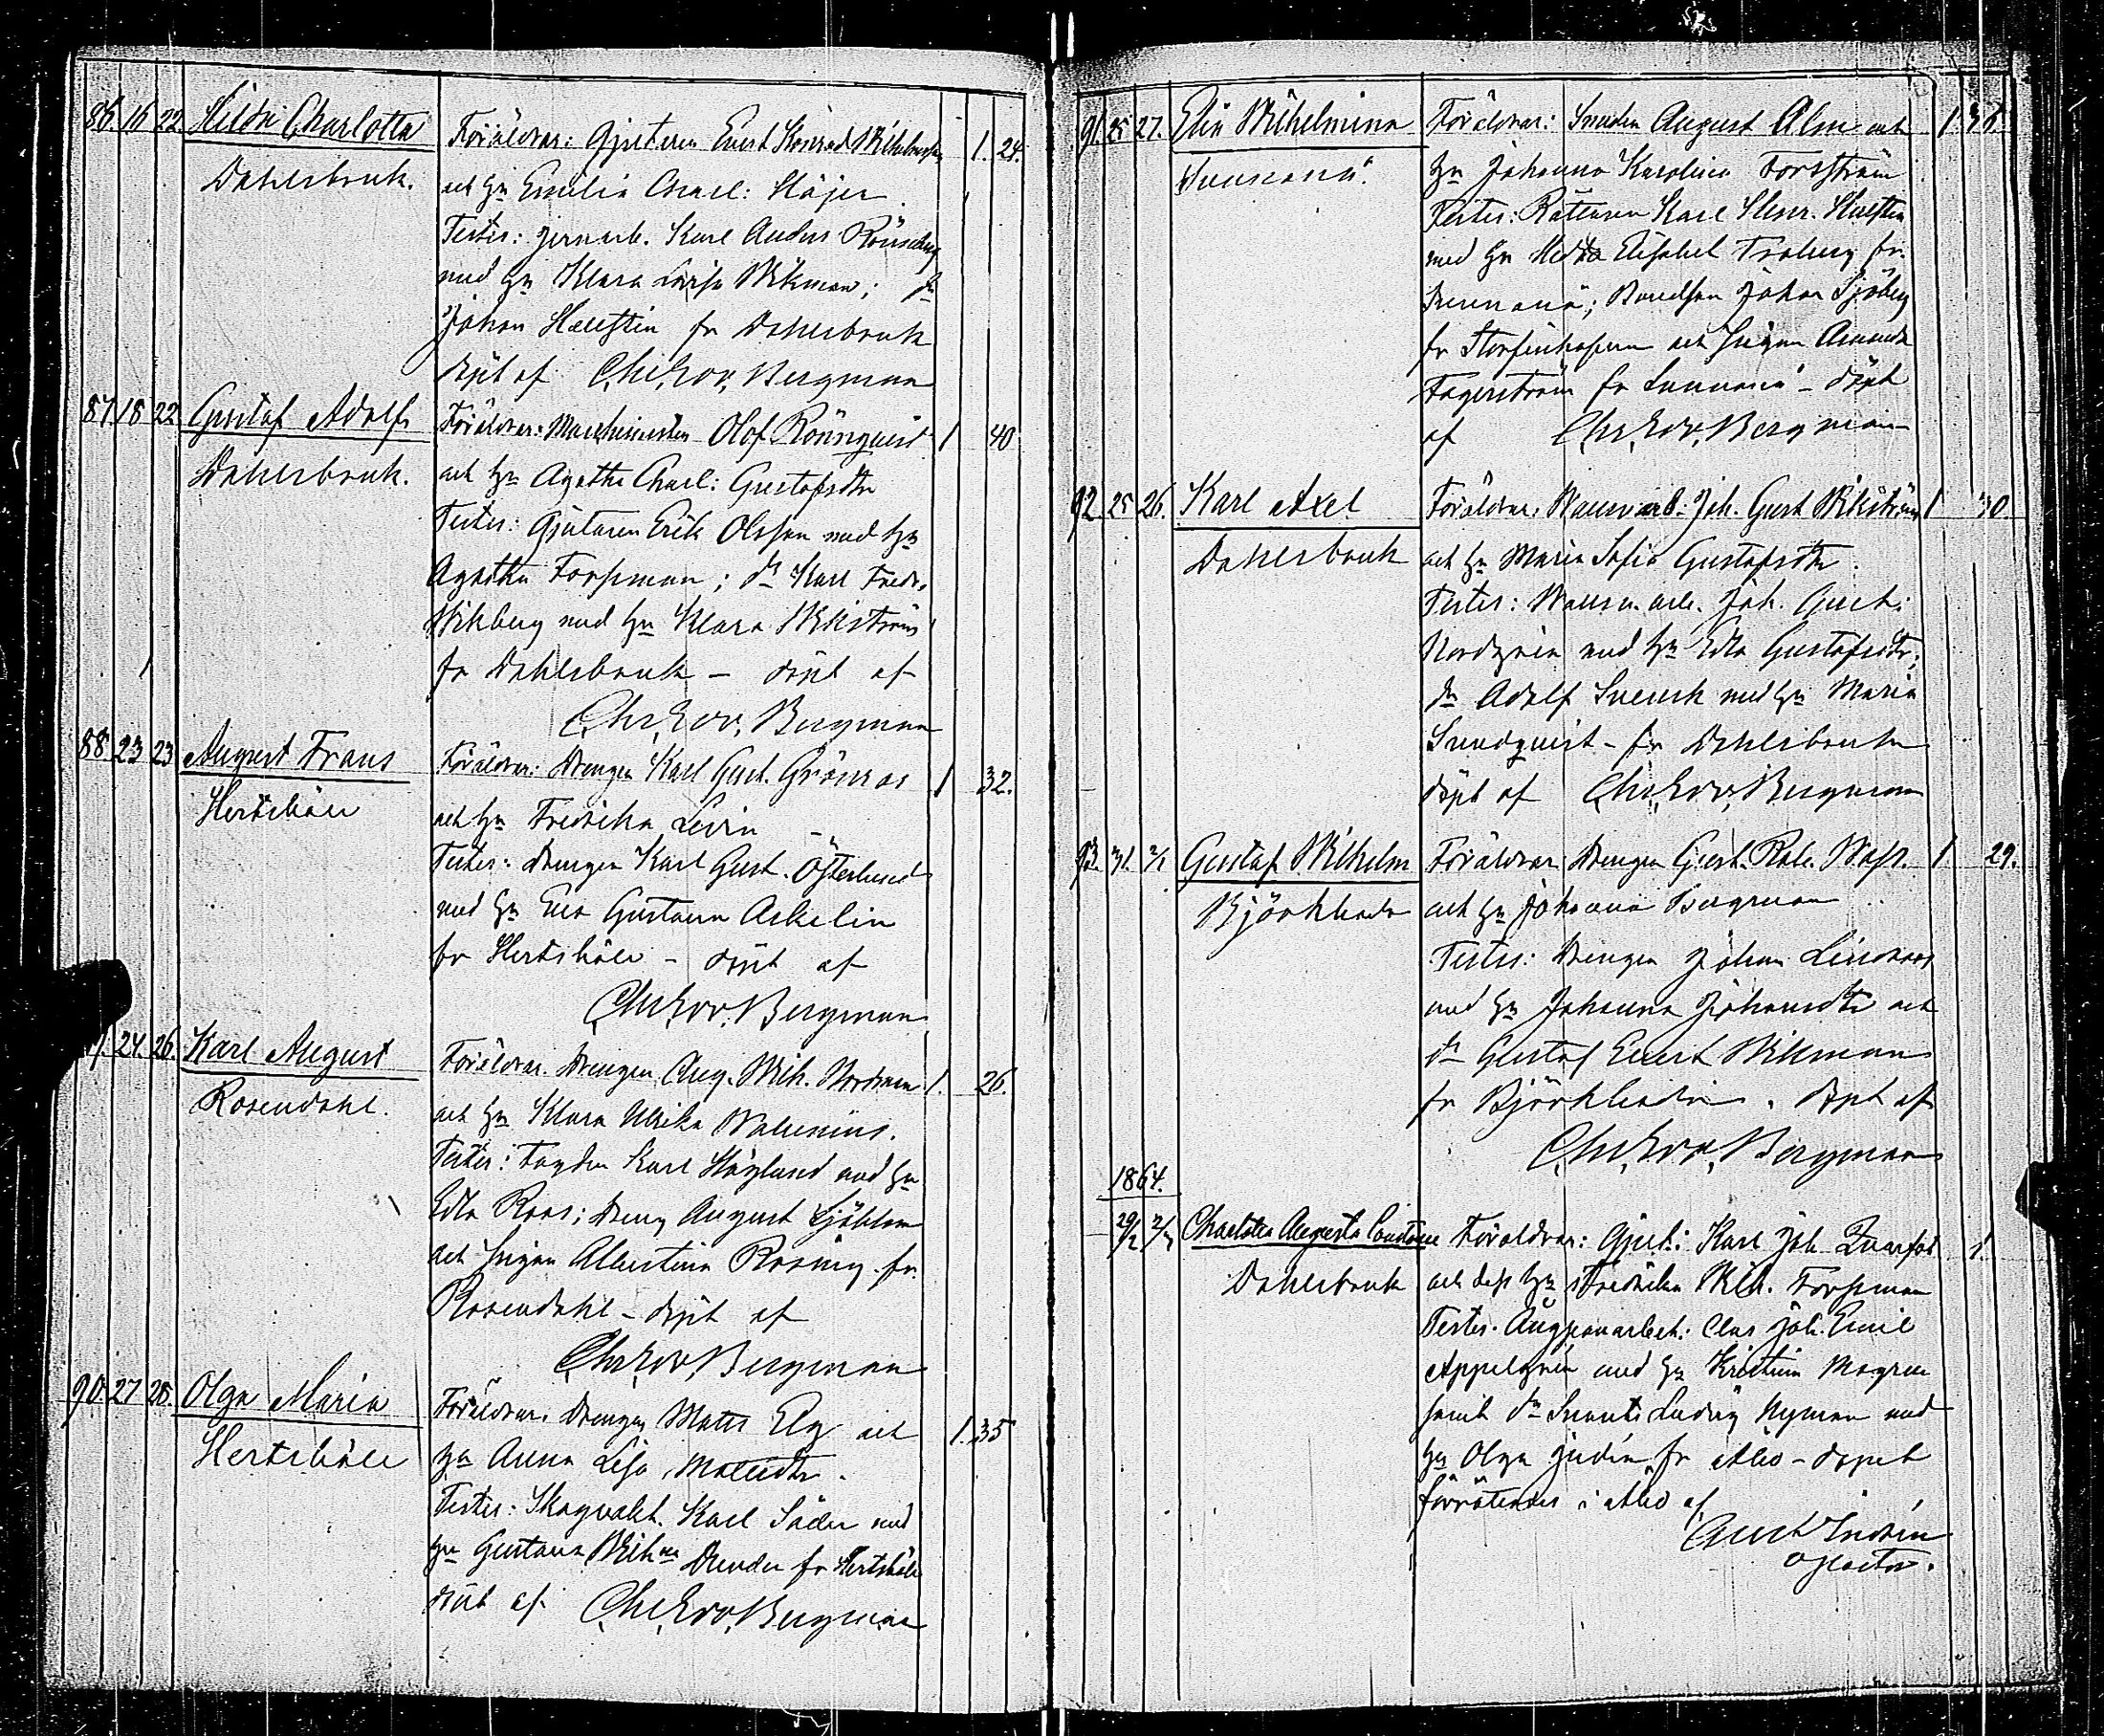 86. 16 22 Hilda Charlotta
Dahlsbruk.
Föräldrar: Gjutaren Evert Konrad Wilhelmsson 1. 24.
och hn Emilia Charl: Höijer.
Testes: jernarb. Karl Anders Rönnberg
med hn Klara Lovisa Wikman; dn
Johan Hallstén fr Dahlsbruk
döpt af Chr. Edv. Bergman
87 18 22 Gustaf Adolf
Dahlsbruk.
Föräldrar: Machinisten Olof Rönnquist 1 40
och hn Agatha Charl: Gustafsdtr
Testes: Gjutaren Erik Olsson med hn
Agatha Forssman; dn Karl Fredr.
Wikberg med hn Klara Wikström
fr Dahlsbruk – döpt af
Chr. Edv. Bergman
88 23 23 August Frans
Hertsböle
Föräldrar: Drengen Karl Gust. Grönroos 1 32.
och hn Fredrika Levin
Testes: Drengen Karl Gust. Österlund
med hn Eva Gustava Askelin
fr Hertsböle – döpt af
Chr. Edv. Bergman
24. 26. Karl August
Rosendahl.
Föräldrar. Drengen Aug. Wilh. Nordman 1. 26.
och hn Klara Ulrika Walenius.
Testes: Fogden Karl Höglund med hn
Edla Roos; Dreng August Sjöblom
och Pigan Albertina Rosing fr.
Rosendahl – döpt af
Chr. Edv. Bergman
90. 27 28. Olga Maria
Hertsböle
Föräldrar. Drengen Matts Elg och 1. 35
hn Anna Lisa Mattsdtr.
Testes: Skogvakt. Karl Söder med
hn Gustava Wilhna fr Hertsböle
döpt af Chr. Edv. Bergman
91. 25 27. Elin Wilhelmina
Sunnanå.
Föräldrar: Smeden August Alm och 1
hn Johanna Karolina Forsström
Testes: Rättaren Karl Henr. Hallstén
med hn Hedda Elisabet Troberg fr.
Sunnanå; Bondson Johan Sjöberg
fr Storfinhofva och Pigan Amanda
Fagerström fr Sunnanå – döpt
af Chr. Edv. Bergman
92. 25 26. Karl Axel
Dahlsbruk
Föräldrar: Walsv.arb: Joh. Gust Wikström 1 30.
och hn Maria Sofia Gustafsdtr.
Testes: Walsv. arb. Joh. Gust:
Nordgrén med hn Edla Gustafsdtr;
dn Adolf Svensk med hn Maria
Sundquist – fr Dahlsbruk
döpt af Chr. Edv. Bergman
93. 31. 2/1 Gustaf Wilhelm
Björkboda
Föräldrar: Drengen Gust. Rob. Wass. 1. 29.
och hn Johanna Bergman
Testes: Drengen Johan Lindroos
med hn Johanna Johansdtr och
dn Gustaf Evert Wikman
fr Björkboda. döpt af
Chr. Edv. Bergman
1864.
29/2 Charlotta Augusta Constance
Dahlsbruk
Föräldrar: Gjut: Karl Joh. Quarfot 1
och dess hn Fredrika Wilh. Forssman
Testes. Ångpanarbet: Clas Joh. Emil
Appelgrén med hn Kristina Magren
samt dn Svante Ludvig Nyman med
hn Olga Judin fr Åbo – dopet
förrättades i Åbo af
Pastor.